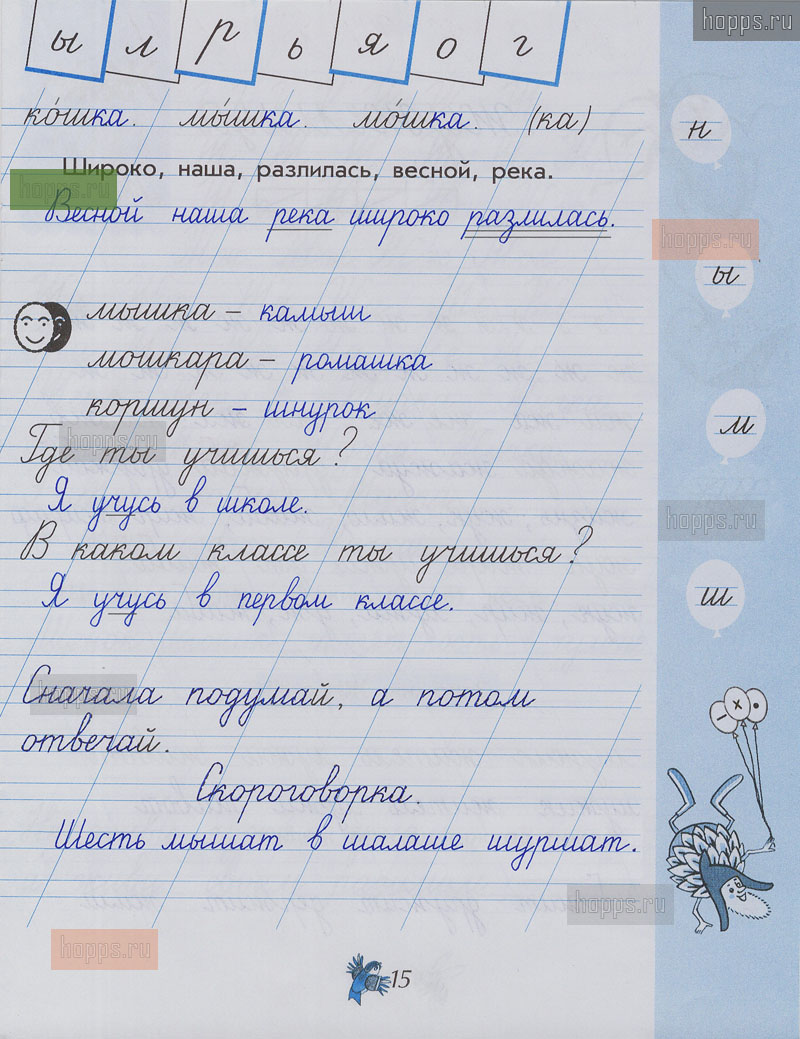 hopps.ru
ы л р ь я о г
ко́шка. мы́шка. мо́шка. (ка)
н
Широко, наша, разлилась, весной, река.
hopps.ru
Весной наша река широко разлилась.
hopps.ru
ы
мышка – камыш
мошкара – ромашка
коршун – шнурок
м
hopps.ru
Где ты учишься?
Я учусь в школе.
hopps.ru
В каком классе ты учишься?
Я учусь в первом классе.
ш
hopps.ru
Сначала подумай, а потом
отвечай.
– × •
Скороговорка.
Шесть мышат в шалаше шуршат.
hopps.ru
hopps.ru
15